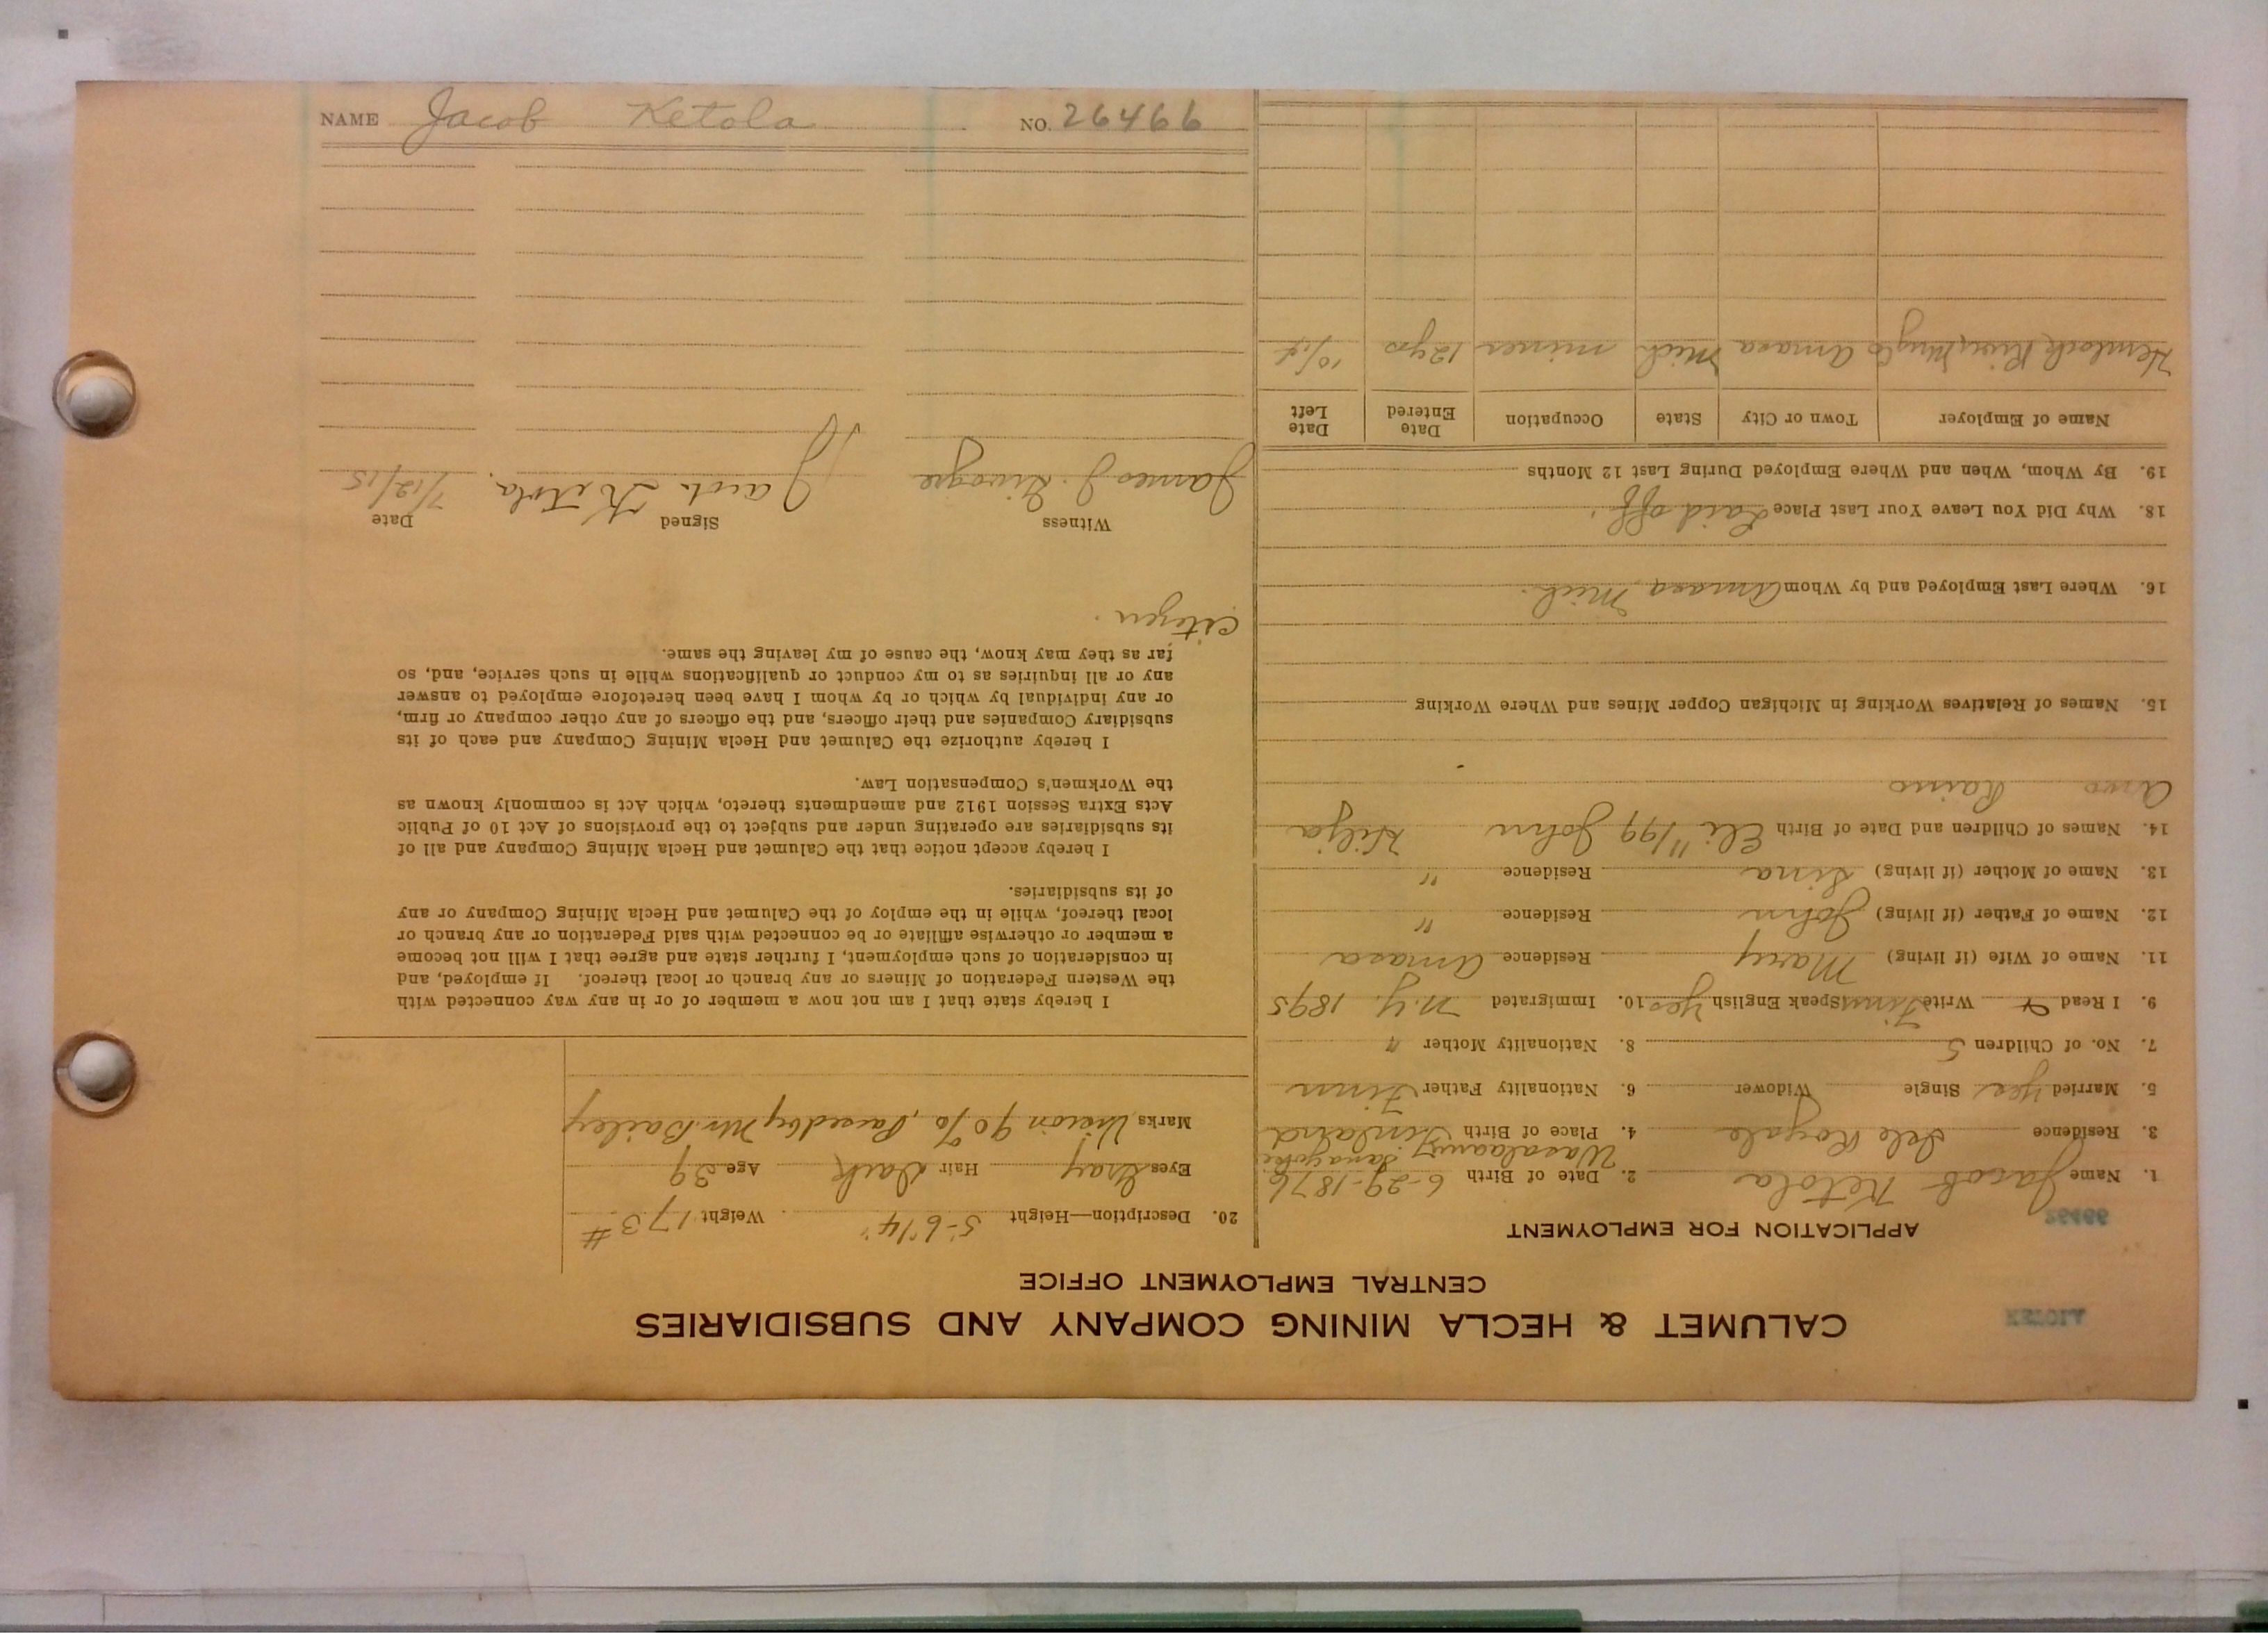 CALUMET & HECLA MINING COMPANY AND SUBSIDIARIES
CENTRAL EMPLOYMENT OFFICE
26466
APPLICATION FOR EMPLOYMENT
1. Name Jacob Ketola 2. Date of Birth 6-29-1876
3. Residence Isle Royale 4. Place of Birth Finland
5. Married Yes Single Widower 6. Nationality Father Finn
7. No. of Children 5 8. Nationality Mother "
9. I Read & Write Finn Speak English Yes 10. Immigrated N.Y. 1895
11. Name of Wife (if living) Mary Residence Amasa
12. Name of Father (if living) John Residence "
13. Name of Mother (if living) Lina Residence "
14. Names of Children and Date of Birth Eli 11/99 John Hilja
Arvo Raino
15. Names of Relatives Working in Michigan Copper Mines and Where Working
16. Where Last Employed and by Whom Amasa, Mich.
18. Why Did You Leave Your Last Place Laid off
19. By Whom, When and Where Employed During Last 12 Months
Name of Employer Town or City State Occupation Date Entered Date Left
Hemlock River Mng Co Amasa Mich miner 12 yrs 10/14
20. Description—Height 5-6 1/4" Weight 173 #
Eyes Gray Hair Dark Age 39
Marks Vision 90%, Passed by Mr. Bailey
I hereby state that I am not now a member of or in any way connected with
the Western Federation of Miners or any branch or local thereof. If employed, and
in consideration of such employment, I further state and agree that I will not become
a member or otherwise affiliate or be connected with said Federation or any branch or
local thereof, while in the employ of the Calumet and Hecla Mining Company or any
of its subsidiaries.
I hereby accept notice that the Calumet and Hecla Mining Company and all of
its subsidiaries are operating under and subject to the provisions of Act 10 of Public
Acts Extra Session 1912 and amendments thereto, which Act is commonly known as
the Workmen's Compensation Law.
I hereby authorize the Calumet and Hecla Mining Company and each of its
subsidiary Companies and their officers, and the officers of any other company or firm,
or any individual by which or by whom I have been heretofore employed to answer
any or all inquiries as to my conduct or qualifications while in such service, and, so
far as they may know, the cause of my leaving the same.
Citizen.
Witness Signed Date
James J. Jacob Ketola. 7/12/15
NAME Jacob Ketola NO. 26466